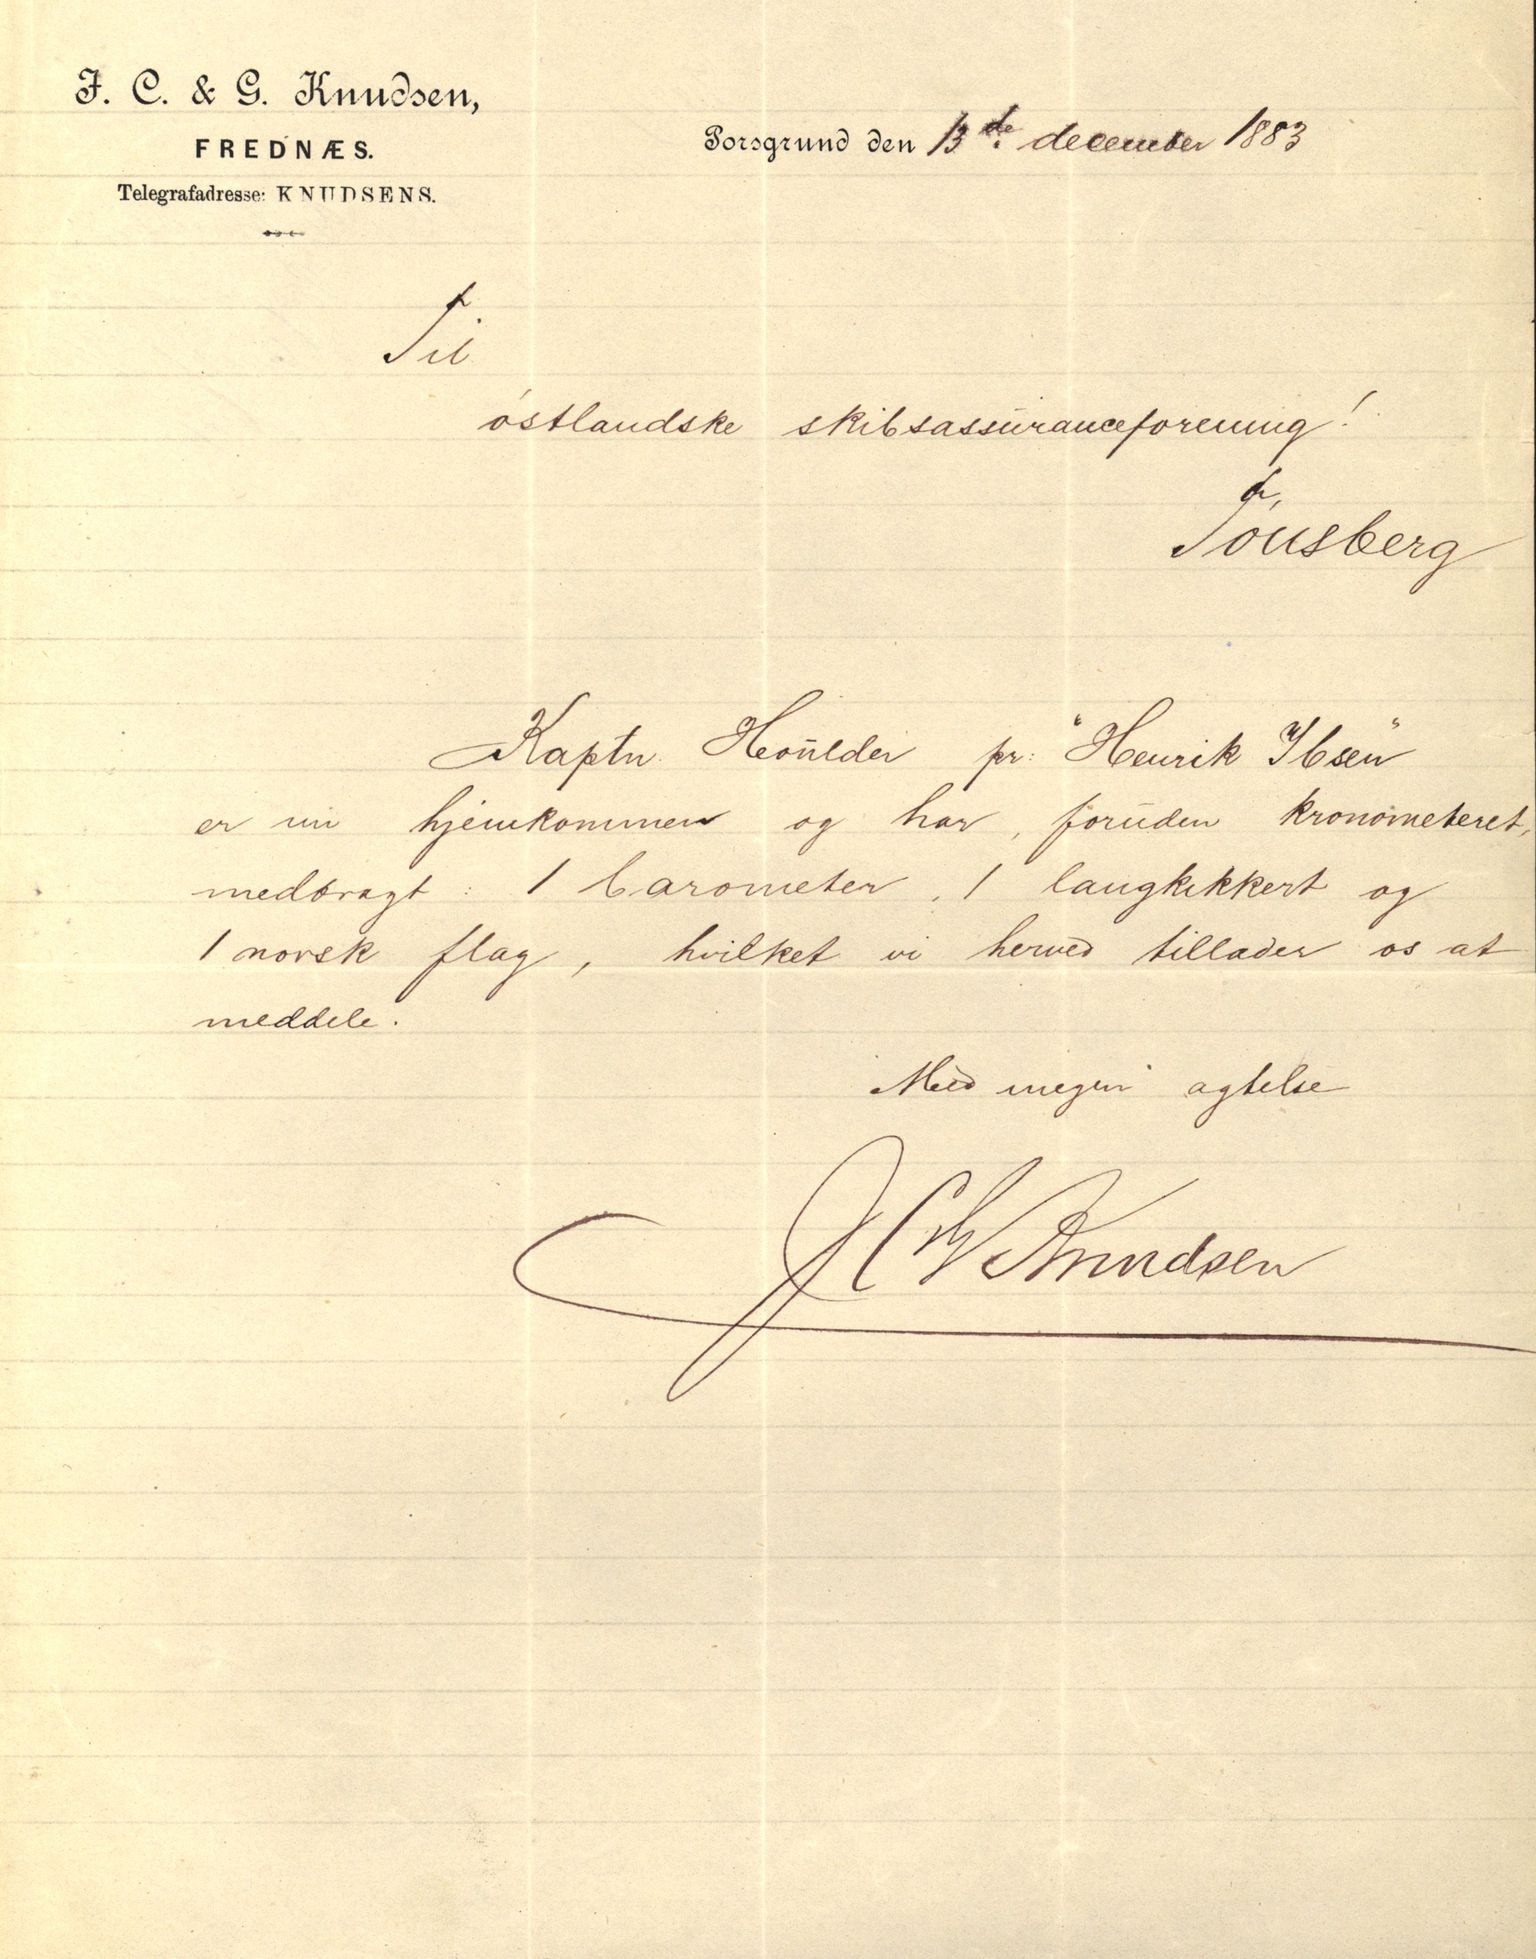 J. C. & G. Knudsen,
FREDNÆS.
Telegrafadresse: KNUDSENS.
Porsgrund den 13de december 1883
Til
østlandske skibsassuranceforening!
Tønsberg
Kaptn. pr: "Henrik Ibsen"
er nu hjemkommen og har, foruden kronometeret,
medbragt: 1 barometer, 1 langkikkert og
1 norsk flag, hvilket vi herved tillader os at
meddele.
Med megen agtelse
J C & G Knudsen